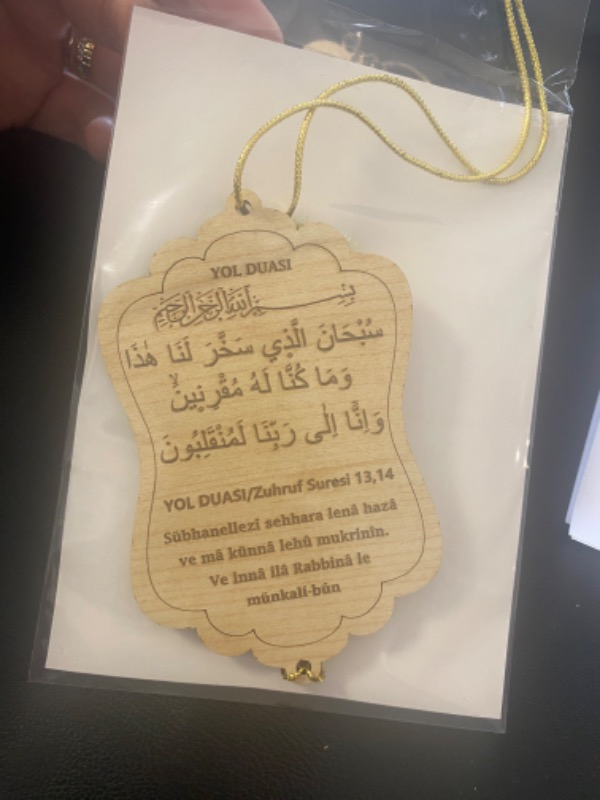 YOL DUASI
بِسْمِ اللهِ الرَّحْمٰنِ الرَّحِيمِ
سُبْحَانَ الَّذِي سَخَّرَ لَنَا هٰذَا
وَمَا كُنَّا لَهُ مُقْرِنِينَۙ
وَاِنَّٓا اِلٰى رَبِّنَا لَمُنْقَلِبُونَ
YOL DUASI/Zuhruf Suresi 13,14
Sübhanellezî sehhara lenâ hazâ
ve mâ künnâ lehû mukrinîn.
Ve innâ ilâ Rabbinâ le
münkali-bûn